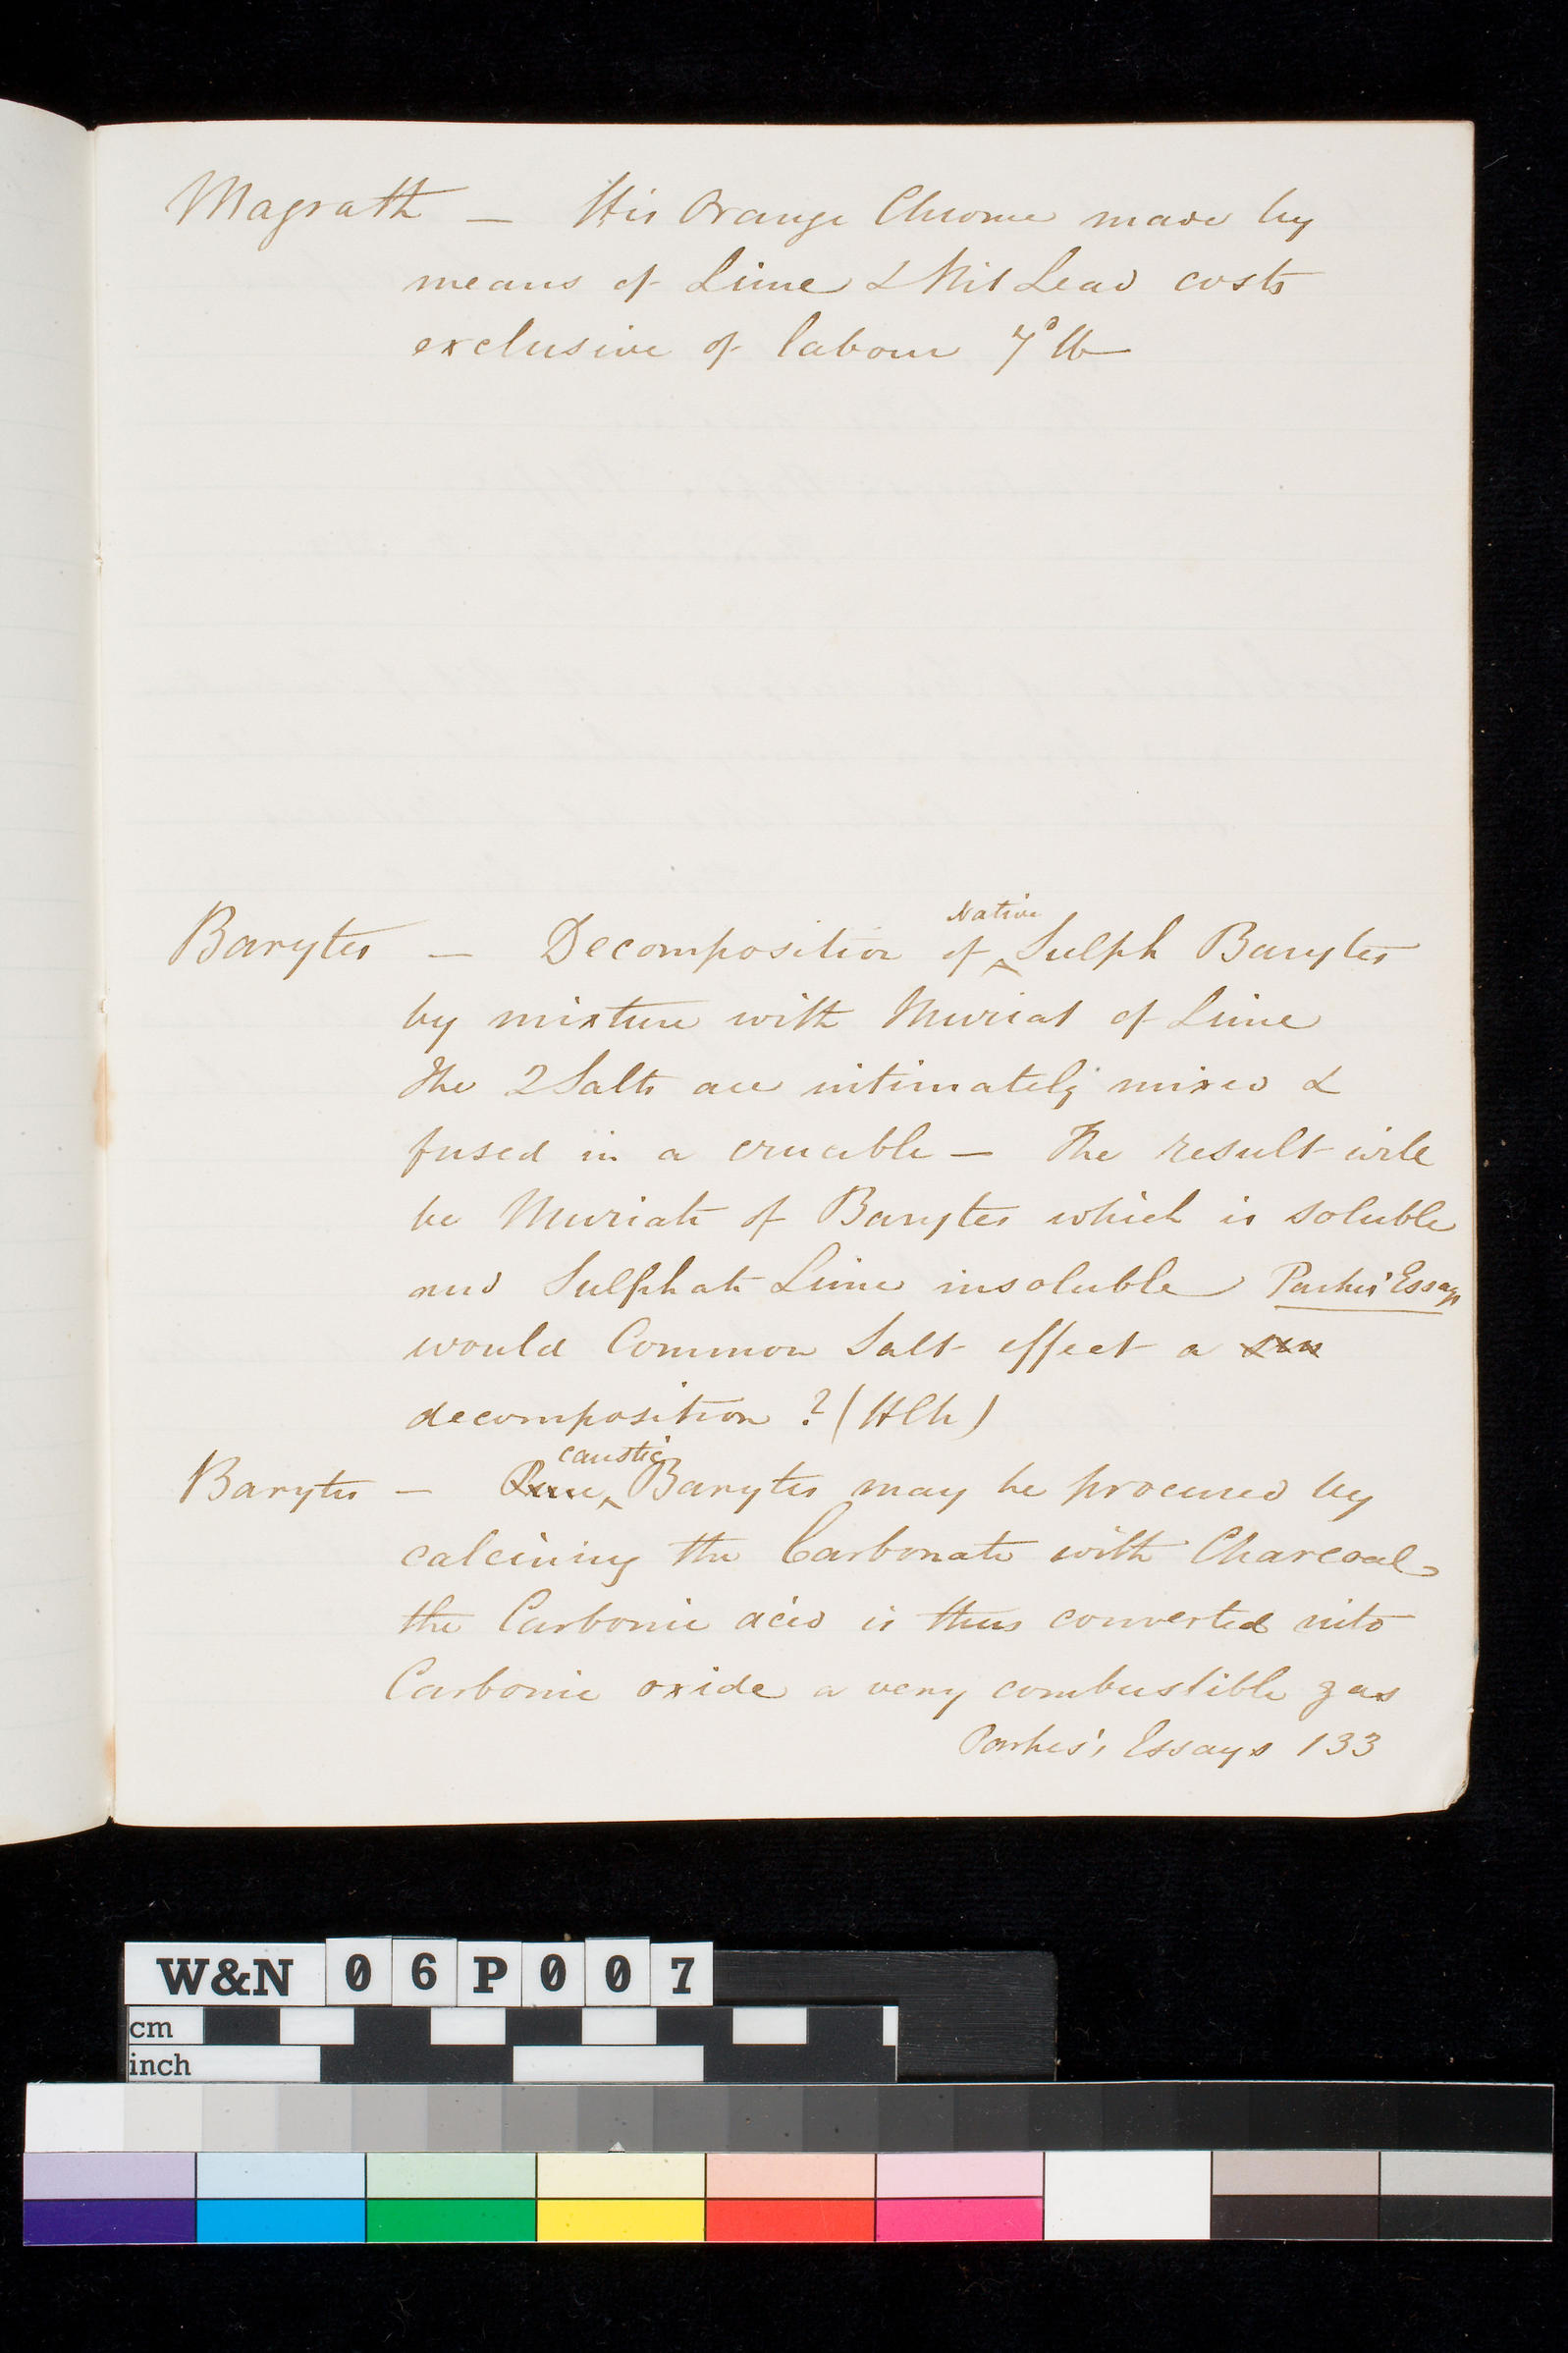 Magrath — His Orange Chrome made by
means of Lime & Nit Lead costs
exclusive of labour 7d lb
Native
Barytes — Decomposition of Sulph Barytes
by mixture with Muriat of Lime
The 2 Salts are intimately mixed &
fused in a crucible — The result will
be Muriate of Barytes which is soluble
and Sulphate Lime insoluble Parkes' Essays
would Common Salt effect a
decomposition ? (HCh)
caustic
Barytes — Pure Barytes may be procured by
calcining the Carbonate with Charcoal
the Carbonic acid is thus converted into
Carbonic oxide a very combustible gas
Parkes's Essays 133
W&N 06P007
cm
inch